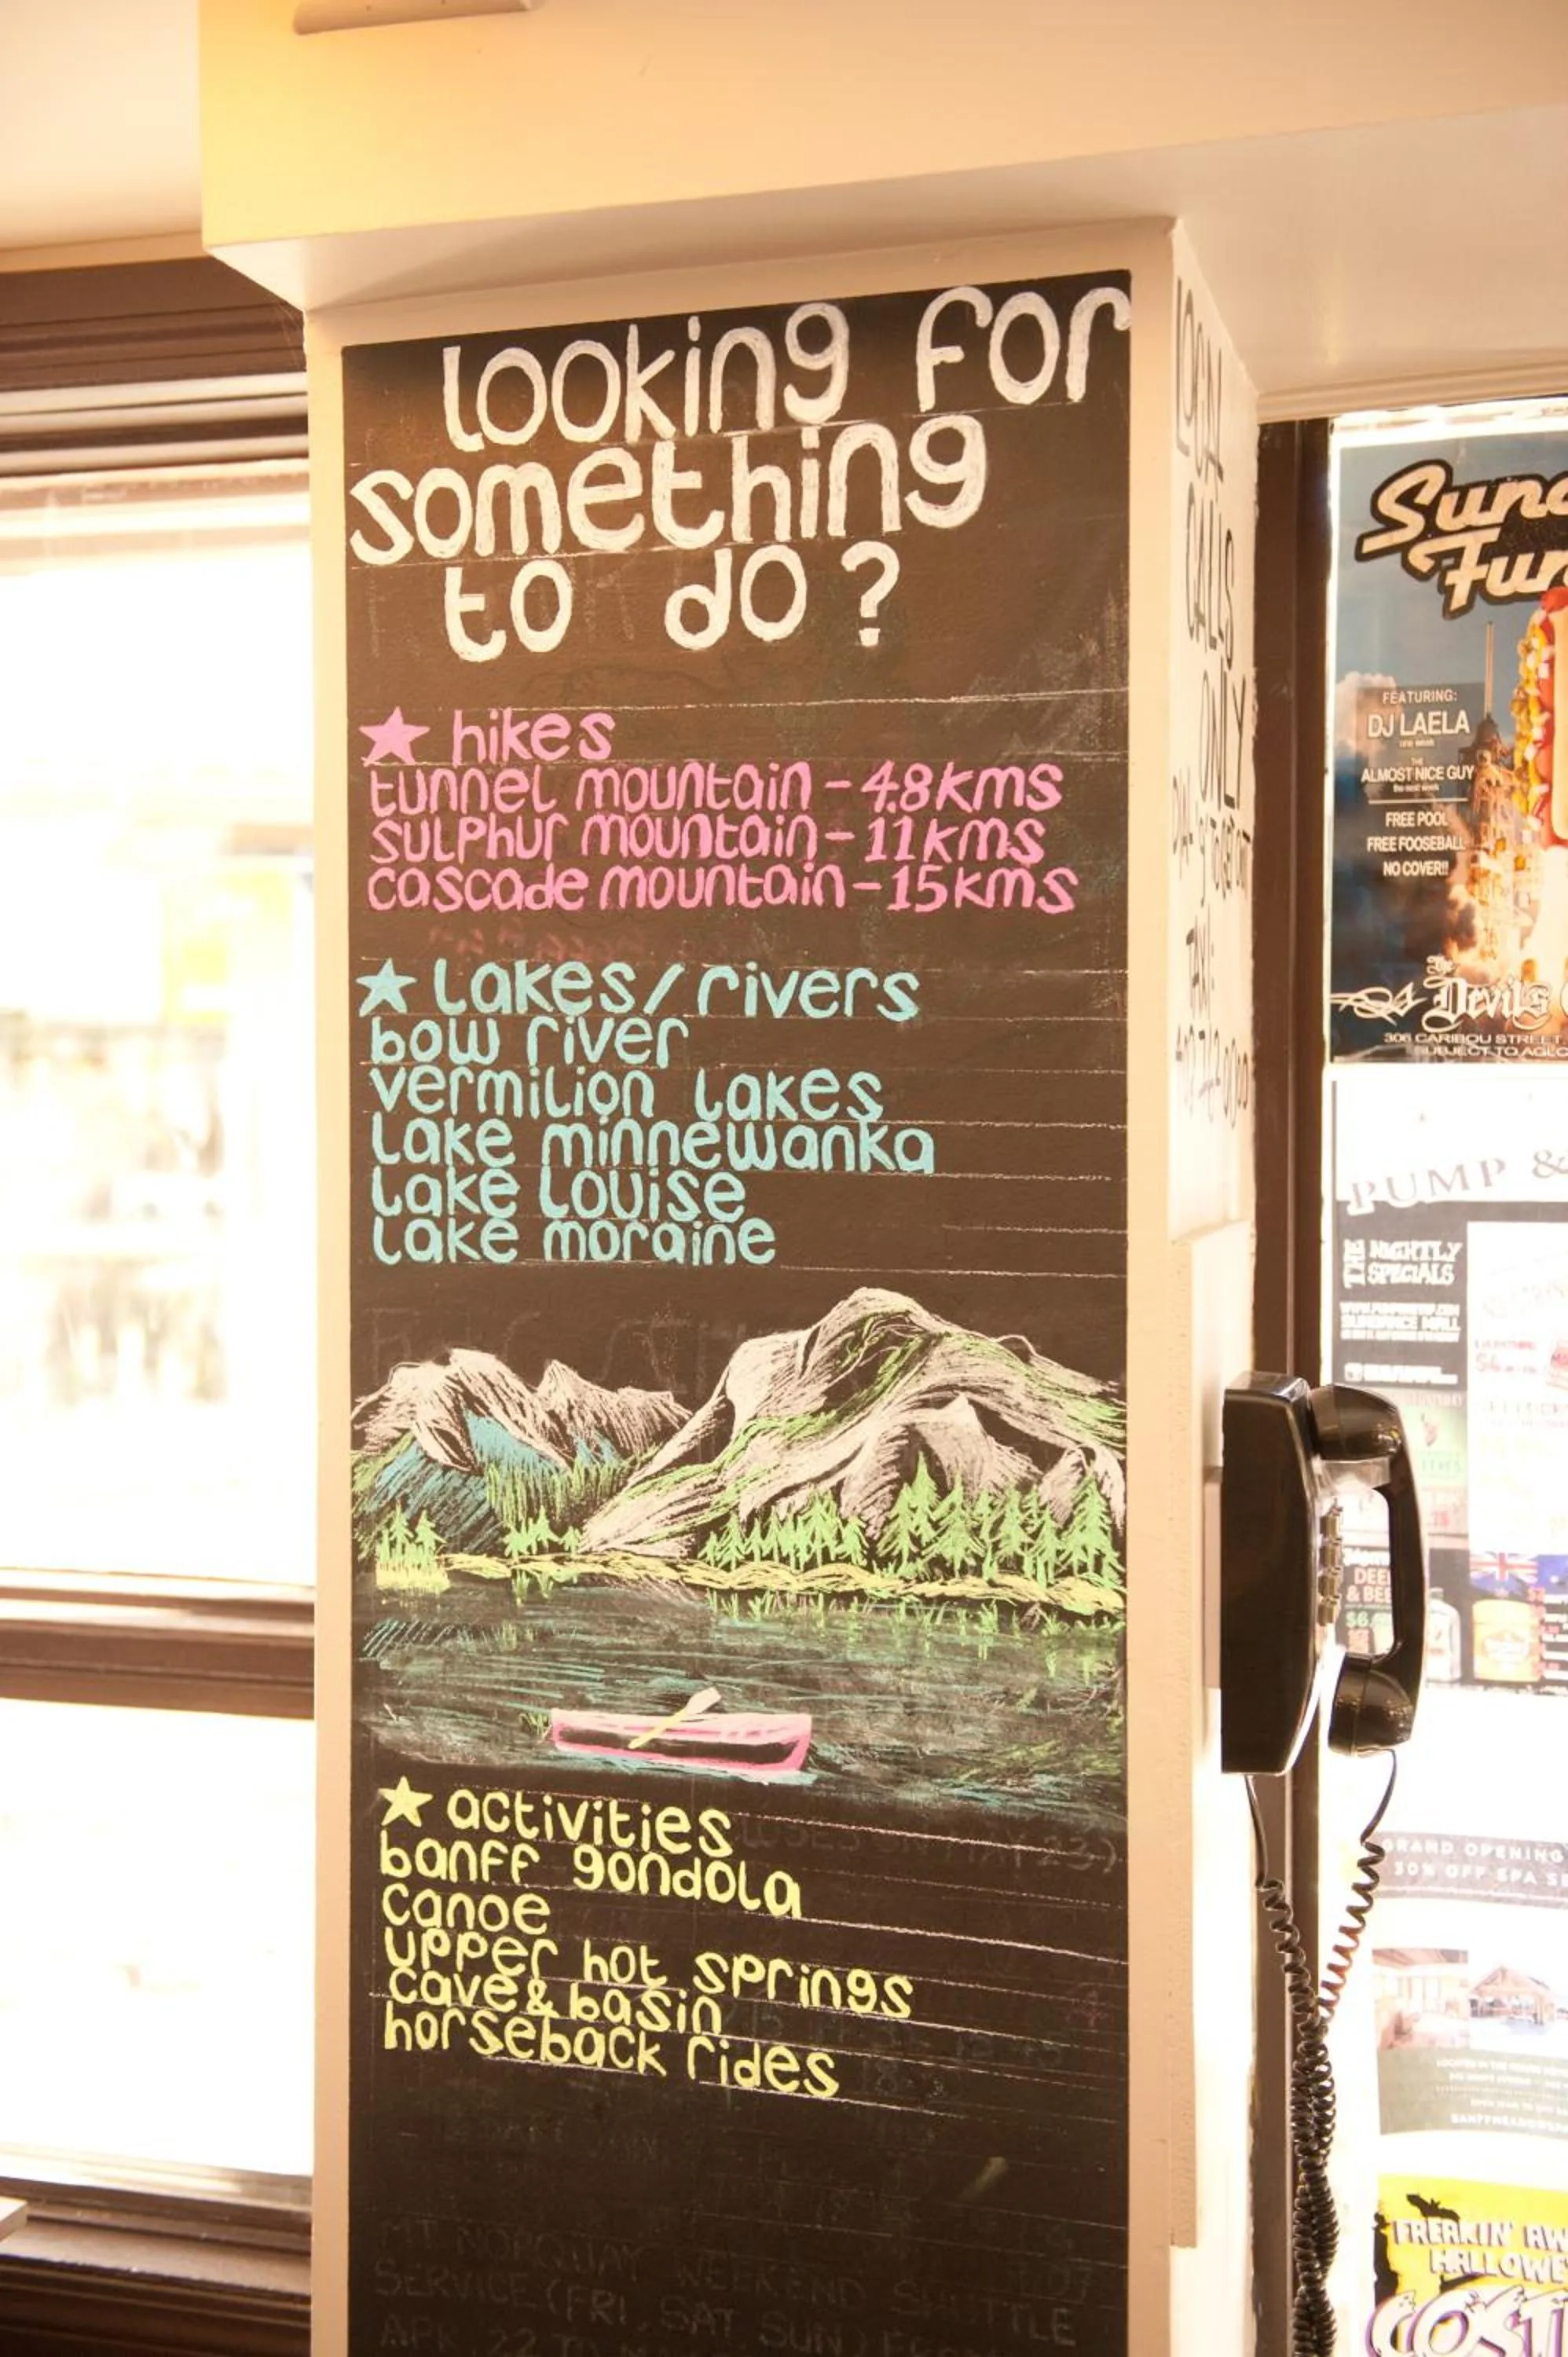 looking for
something
to do?
★ hikes
tunnel mountain - 4.8kms
sulphur mountain - 11kms
cascade mountain - 15kms
★ lakes/rivers
bow river
vermilion lakes
lake minnewanka
lake louise
lake moraine
★ activities
banff gondola
canoe
upper hot springs
cave & basin
horseback rides
MT NORQUAY
SERVICE (FRI, SAT, SUN
LOCAL
CALLS
ONLY
FEATURING:
DJ LAELA
one week
THE
ALMOST NICE GUY
the next week
FREE POOL
FREE FOOSEBALL
NO COVER!!
The
Devils
306 CARIBOU STREET
SUBJECT TO
PUMP &
THE NIGHTLY
SPECIALS
SUNDANCE MALL
DEE
& BEE
$6
GRAND OPENING
30% OFF SPA
FREAKIN' AW
HALLOWE
COST